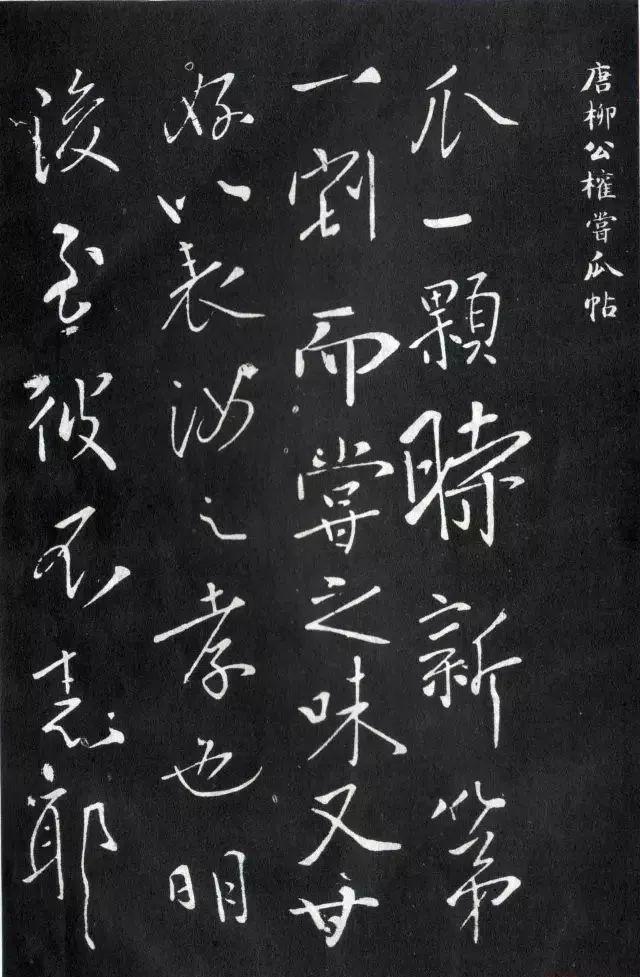 唐柳公權嘗瓜帖
瓜一顆時新第
一割而嘗之味又甘
好以表汝之孝也明
後至彼不悉耶